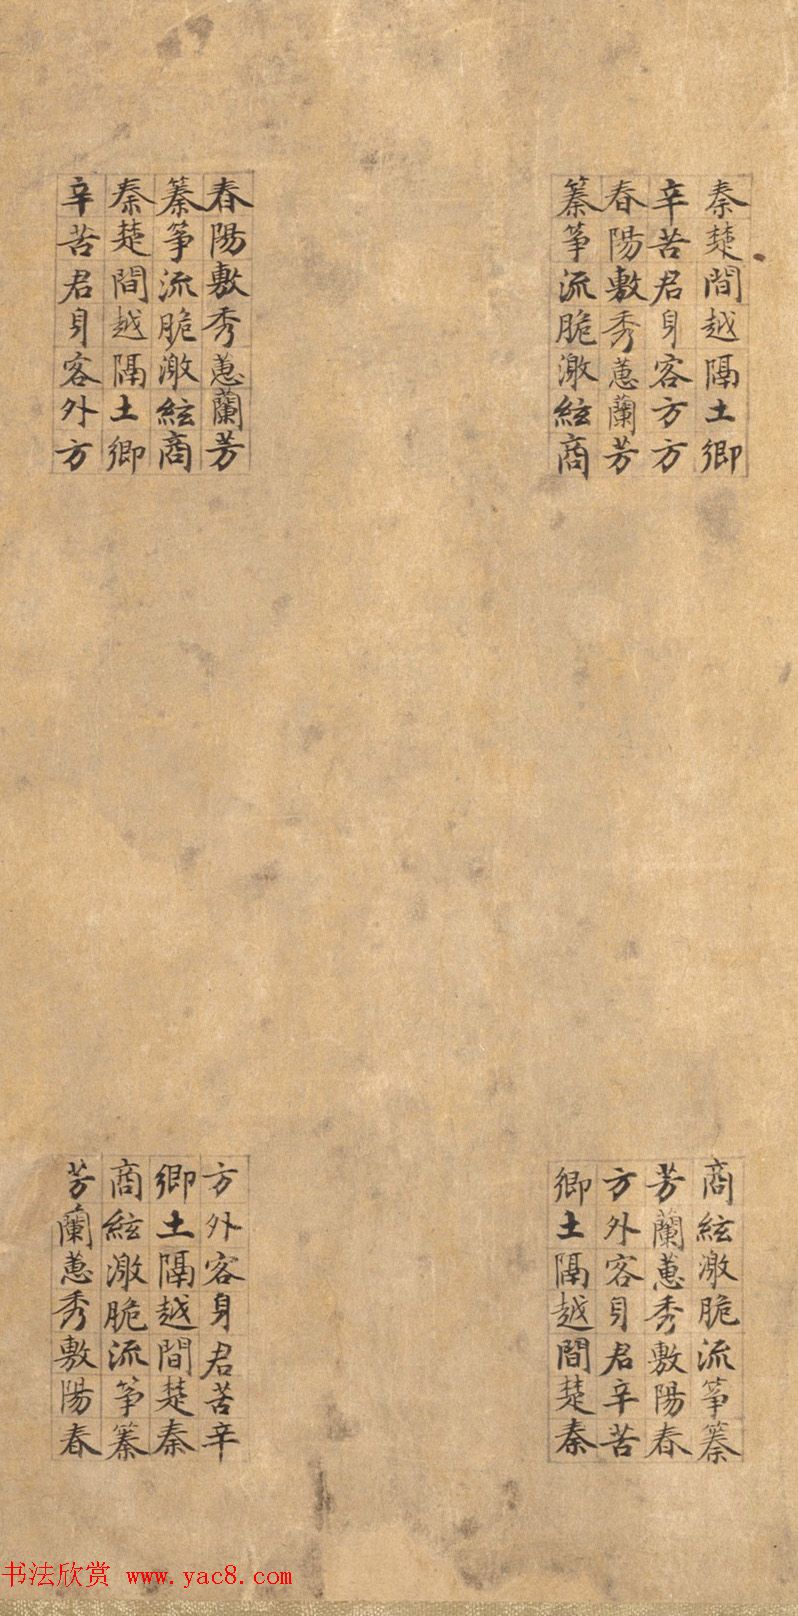 秦楚間越隔土卿
辛苦君身客方方
春陽敷秀蕙蘭芳
蓁筝流脆激絃商
春陽敷秀蕙蘭芳
蓁筝流脆激絃商
秦楚間越隔土卿
辛苦君身客外方
商絃激脆流筝蓁
芳蘭蕙秀敷陽春
方外客身君辛苦
卿土隔越間楚秦
方外客身君苦辛
卿土隔越間楚秦
商絃激脆流筝蓁
芳蘭蕙秀敷陽春
书法欣赏 www.yac8.com